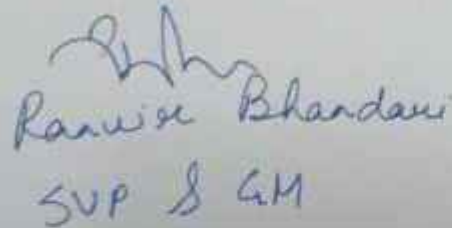 Ranvir Bhandari
SVP & GM